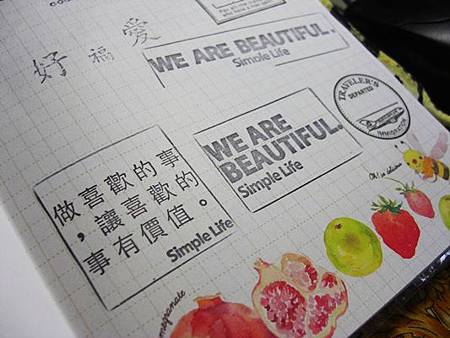 好 福 愛
WE ARE BEAUTIFUL.
Simple Life
TRAVELER'S
DEPARTED
IMMIGRATION
WE ARE
BEAUTIFUL.
Simple Life
做喜歡的事
，讓喜歡的
事有價值。
Simple Life